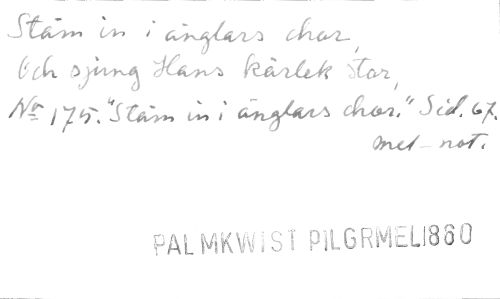 Stäm in i änglars chor,
Och sjung Hans kärlek stor,
No 175. "Stäm in i änglars chor." Sid. 67.
mel-not.
PALMKWIST PILGRMEL1860